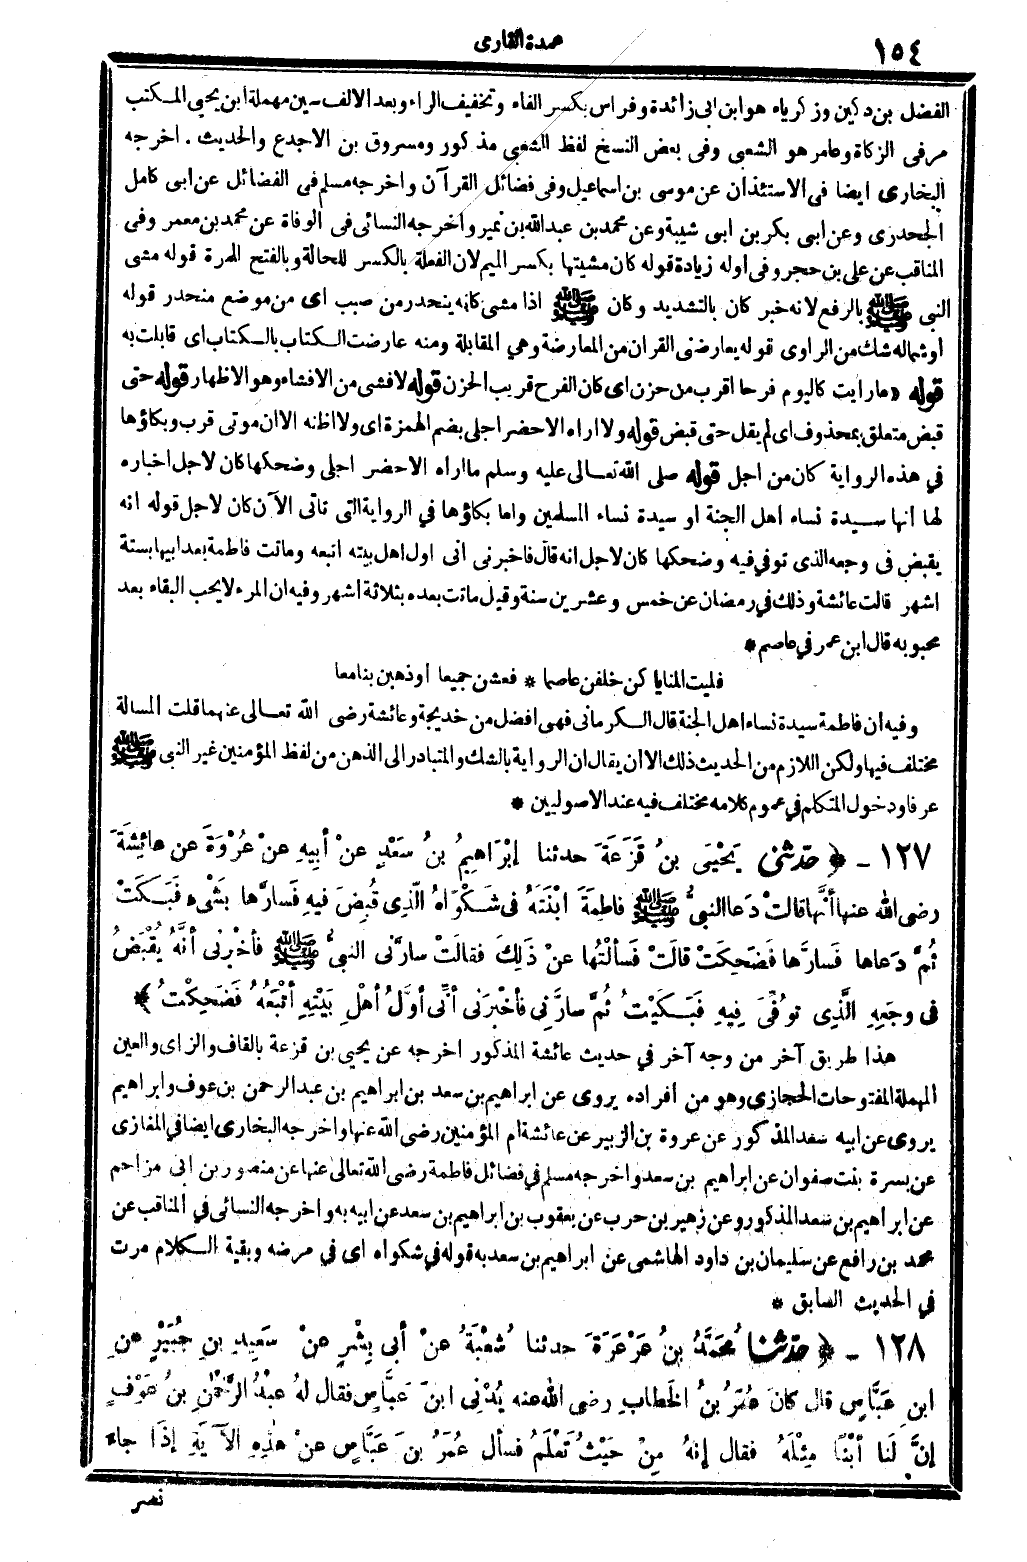 ١٥٤
عمدة القارى
الفضل بن دكين وزكرياء هو ابن ابى زائدة وفراس بكسر الفاء وتخفيف الراء وبعد الالف سين مهملة ابن يحيى المكتب
مر فى الزكاة وعامر هو الشعبى وفى بعض النسخ لفظ الشعبى مذكور ومسروق بن الاجدع والحديث . اخرجه
البخارى ايضا فى الاستئذان عن موسى بن اسماعيل وفى فضائل القرآن واخرجه مسلم فى الفضائل عن ابى كامل
الجحدرى وعن ابى بكر بن ابى شيبة وعن محمد بن عبدالله بن نمير واخرجه النسائى فى الوفاة عن محمد بن معمر وفى
المناقب عن على بن حجر وفى اوله زيادة قوله كان مشيتها بكسر الميم لان الفعلة بالكسر للحالة وبالفتح للمرة قوله مشى
النبى ﷺ بالرفع لانه خبر كان بالتشديد وكان ﷺ اذا مشى كانه ينحدر من صبب اى من موضع منحدر قوله
او شماله شك من الراوى قوله يعارضنى القران من المعارضة وهى المقابلة ومنه عارضت الكتاب بالكتاب اى قابلت به
قوله «ما رايت كاليوم فرحا اقرب من حزن اى كان الفرح قريب الحزن قوله لافشى من الافشاء وهو الاظهار قوله حتى
قبض متعلق بمحذوف اى لم يقل حتى قبض قوله ولا اراه الا حضر اجلى بضم الهمزة اى ولا اظنه الا ان موتى قرب وبكاؤها
فى هذه الرواية كان من اجل قوله صلى الله تعالى عليه وسلم ما اراه الا حضر اجلى وضحكها كان لاجل اخباره
لها أنها سيدة نساء اهل الجنة او سيدة نساء المسلمين واما بكاؤها فى الرواية التى تاتى الآن كان لاجل قوله انه
يقبض فى وجعه الذى توفى فيه وضحكها كان لاجل انه قال فاخبرنى انى اول اهل بيته اتبعه وماتت فاطمة بعد ابيها بستة
اشهر قالت عائشة وذلك فى رمضان عن خمس وعشرين سنة وقيل ماتت بعده بثلاثة اشهر وفيه ان المرء لا يحب البقاء بعد
محبوبه قال ابن عمر فى عاصم *
فليت المنايا كن خلفن عاصما * فعشن جميعا أو ذهبن بنا معا
وفيه ان فاطمة سيدة نساء اهل الجنة قال الكرمانى فهى افضل من خديجة وعائشة رضى الله تعالى عنهما قلت المسالة
مختلف فيها ولكن اللازم من الحديث ذلك الا ان يقال ان الرواية بالشك والمتبادر الى الذهن من لفظ المؤمنين غير النبى ﷺ
عرفا ودخول المتكلم فى عموم كلامه مختلف فيه عند الاصوليين *
١٢٧ - ﴿ حَدَّثَنى يَحْيَى بنُ قَزَعَةَ حدثنا إبْرَاهِيمُ بنُ سَعْدٍ عنْ أبِيهِ عنْ عُرْوَةَ عن عائِشَةَ
رضى الله عنها أنَّها قالتْ دَعا النبىُّ ﷺ فاطِمَةَ ابْنَتَهُ فى شَكْوَاهُ الَّذِى قُبِضَ فِيهِ فَسارَّها بَشَىْءٍ فَبَكَتْ
ثُمَّ دَعاها فَسارَّها فَضَحِكَتْ قالَتْ فَسألْتُها عنْ ذَلِكَ فقالَتْ سارَّنى النبىُّ ﷺ فأخْبرنى أنَّهُ يُقْبَضُ
فى وجَعِهِ الَّذِى تُوُفِّىَ فِيهِ فَبَكَيْتُ ثُمَّ سارَّنِى فأخْبَرَنى أنِّى أوَّلُ أهْلِ بَيْتِهِ أتْبَعُهُ فَضَحِكْتُ ﴾
هذا طريق آخر من وجه آخر فى حديث عائشة المذكور اخرجه عن يحيى بن قزعة بالقاف والزاى والعين
المهملة المفتوحات الحجازى وهو من أفراده يروى عن ابراهيم بن سعد بن ابراهيم بن عبد الرحمن بن عوف وابراهيم
يروى عن ابيه سعد المذكور عن عروة بن الزبير عن عائشة ام المؤمنين رضى الله عنها واخرجه البخارى ايضا فى المغازى
عن بسرة بنت صفوان عن ابراهيم بن سعد واخرجه مسلم فى فضائل فاطمة رضى الله تعالى عنها عن منصور بن ابى مزاحم
عن ابراهيم بن سعد المذكور وعن زهير بن حرب عن يعقوب بن ابراهيم بن سعد عن ابيه به واخرجه النسائى فى المناقب عن
محمد بن رافع عن سليمان بن داود الهاشمى عن ابراهيم بن سعد به قوله فى شكواه اى فى مرضه وبقية الكلام مرت
فى الحديث السابق *
١٢٨ - ﴿ حَدَّثَنا مُحَمَّدُ بنُ عَرْعَرَةَ حدثنا شُعْبَةُ عنْ أبى بِشْرٍ عنْ سَعِيدِ بنِ جُبَيْرٍ عنِ
ابنِ عَبَّاسٍ قال كانَ عُمَرُ بنُ الخَطابِ رضى الله عنه يُدْنِى ابنَ عَبَّاسٍ فقال لهُ عبْدُ الرَّحْمٰنِ بنُ عَوْفٍ
إنَّ لَنا أبْنَاً مِثْلَهُ فقال إنهُ مِنْ حَيْثُ تَعْلَمُ فسأل عُمَرُ بنَ عَبَّاسٍ عنْ هٰذِهِ الآيَةِ إذَا جاءَ
نصر